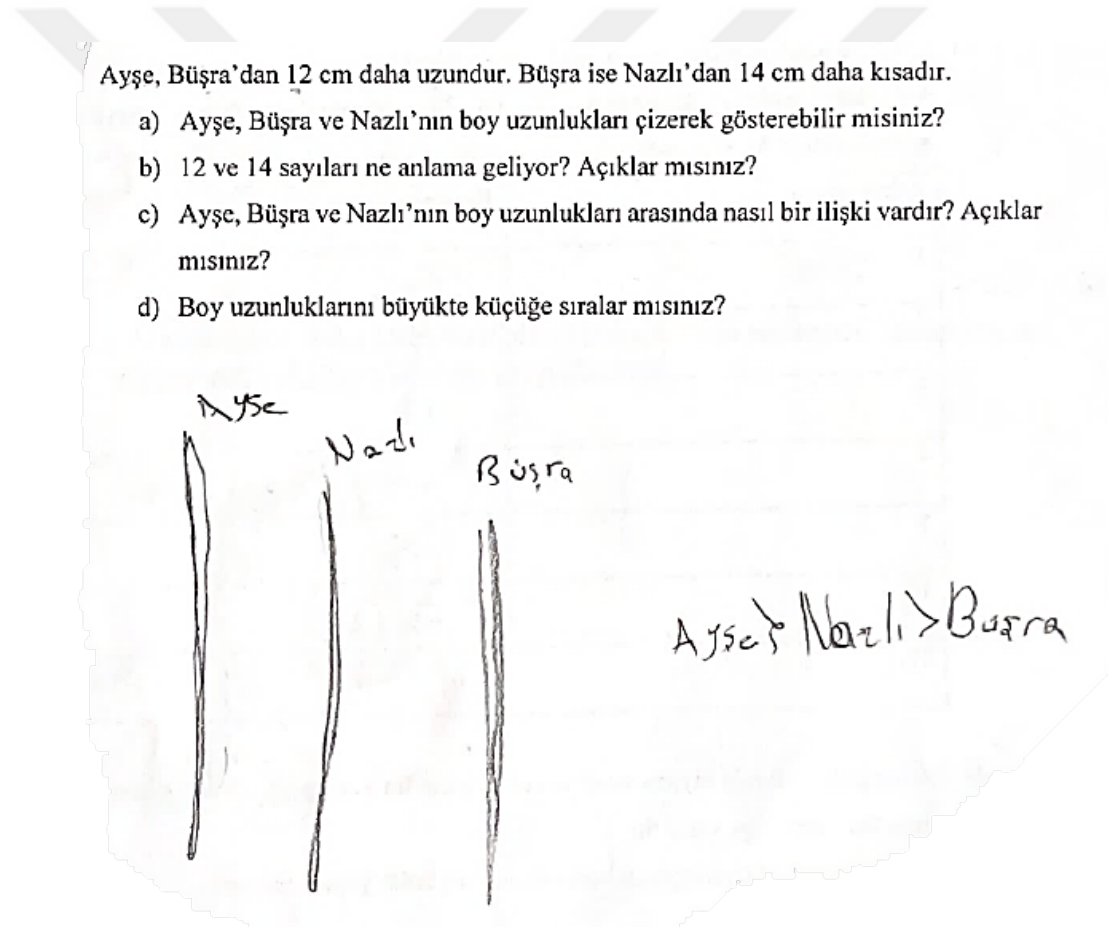 Ayşe, Büşra'dan 12 cm daha uzundur. Büşra ise Nazlı'dan 14 cm daha kısadır.
a) Ayşe, Büşra ve Nazlı'nın boy uzunlukları çizerek gösterebilir misiniz?
b) 12 ve 14 sayıları ne anlama geliyor? Açıklar mısınız?
c) Ayşe, Büşra ve Nazlı'nın boy uzunlukları arasında nasıl bir ilişki vardır? Açıklar
mısınız?
d) Boy uzunluklarını büyükte küçüğe sıralar mısınız?
Ayşe
Nazlı
Büşra
Ayşe > Nazlı > Büşra